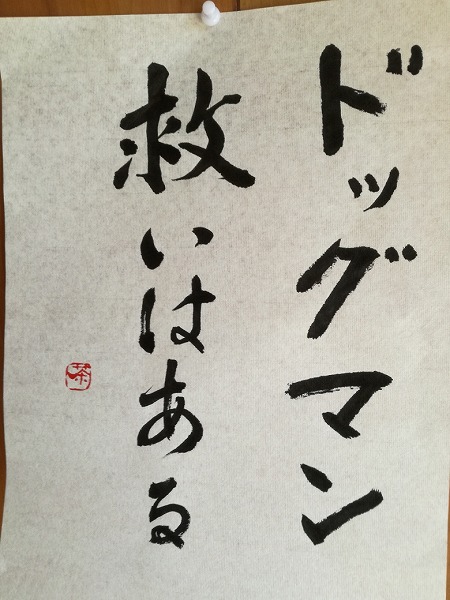 ドッグマン
救いはある
茶